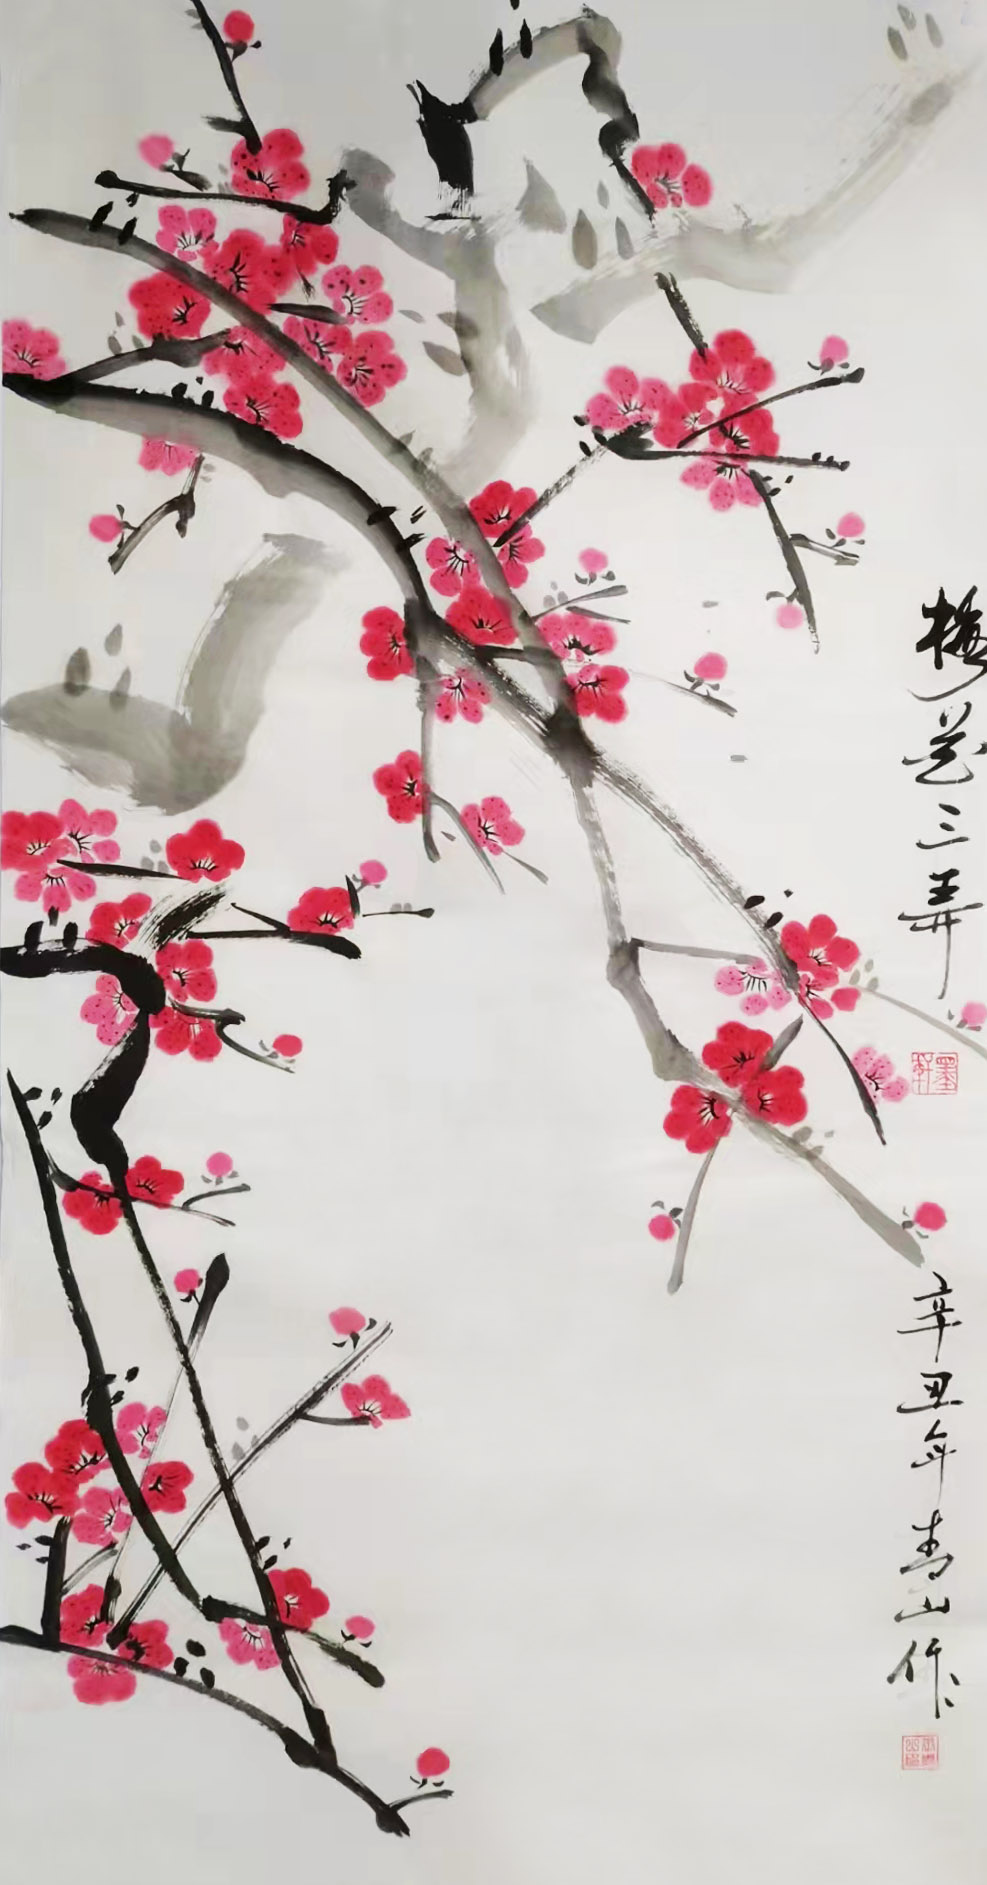 梅花三弄
辛丑年青山作